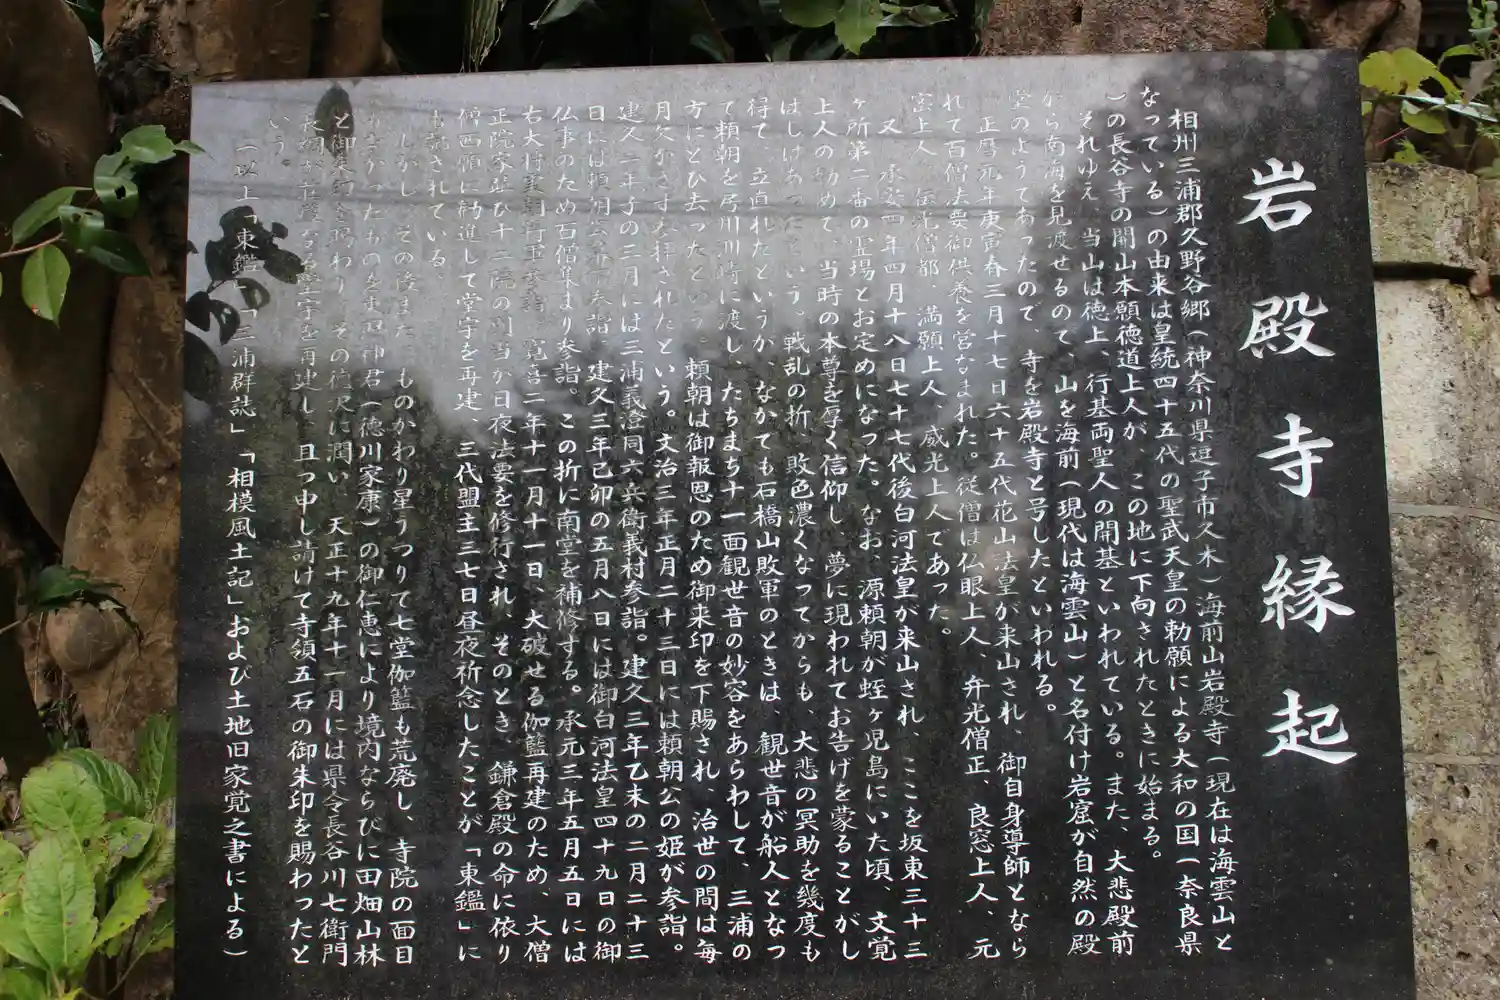 岩殿寺縁起
相州三浦郡久野谷郷(神奈川県逗子市久木)海前山岩殿寺(現在は海雲山と
なっている)の由来は皇統四十五代の聖武天皇の勅願による大和の国(奈良県
)の長谷寺の開山本願徳道上人が、この地に下向されたときに始まる。
それゆえ、当山は徳上、行基両聖人の開基といわれている。また、大悲殿前
から南海を見渡せるので、山を海前(現代は海雲山)と名付け岩窟が自然の殿
堂のようであったので、寺を岩殿寺と号したといわれる。
正暦元年庚寅春三月十七日六十五代花山法皇が来山され、御自身導師となら
れて百僧法要御供養を営なまれた。従僧は仏眼上人、弁光僧正、良窓上人、元
密上人、光僧都、満願上人、威光上人であった。
又、承安四年四月十八日七十七代後白河法皇が来山され、ここを坂東三十三
ヶ所第二番の霊場とお定めになった。なお、源頼朝が蛭ヶ児島にいた頃、文覚
上人の勧めで、当時の本尊を厚く信仰し、夢に現われてお告げを蒙ることがし
ばしばあったという。戦乱の折、敗色濃くなってからも、大悲の冥助を幾度も
得て、立直れたというが、なかでも石橋山敗軍のときは、観世音が船人となっ
て頼朝を房州洲崎に渡し、たちまち十一面観世音の妙容をあらわして、三浦の
方にとび去ったという。頼朝は御報恩のため御来印を下賜され、治世の間は毎
月欠かさず参拝されたという。文治三年正月二十三日には頼朝公の姫が参詣。
建久二年子の三月には三浦義澄同六兵衛義村参詣。建久三年乙未の二月二十三
日には頼朝公参詣、建久三年己卯の五月八日には御白河法皇四十九日の御
仏事のため百僧集まり参詣。この折に南堂を補修する。承元三年五月五日には
右大将実朝将軍参詣。寛喜二年十一月十一日、大破せる伽籃再建のため、大僧
正院家並び十二院の別当が日夜法要を修行され、そのとき、鎌倉殿の命に依り
僧西願に勧進して堂宇を再建、三代盟主三七日昼夜祈念したことが「東鑑」に
記されている。
しかし、その後また、ものかわり星うつりて七堂伽籃も荒廃し、寺院の面目
なかったものを東照神君(徳川家康)の御仁恵により境内ならびに田畑山林
と御朱印を賜わり、その徳沢に潤い、天正十九年十一月には県令長谷川七衛門
長綱が荘厳なる堂宇を再建し、且つ申し請けて寺領五石の御朱印を賜わったと
いう。
(以上「東鑑」「三浦群誌」「相模風土記」および土地旧家覚之書による)